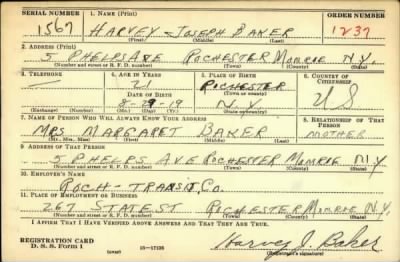 SERIAL NUMBER 1. NAME (Print) ORDER NUMBER
1567 HARVEY JOSEPH BAKER 1237
(First) (Middle) (Last)
2. ADDRESS (Print)
5 PHELPS AVE ROCHESTER MONROE N.Y.
(Number and street or R. F. D. number) (Town) (County) (State)
3. TELEPHONE 4. AGE IN YEARS 5. PLACE OF BIRTH 6. COUNTRY OF CITIZENSHIP
21 ROCHESTER
DATE OF BIRTH (Town or county)
8-29-19 N.Y. US
(Exchange) (Number) (Mo.) (Day) (Yr.) (State or country)
7. NAME OF PERSON WHO WILL ALWAYS KNOW YOUR ADDRESS 8. RELATIONSHIP OF THAT PERSON
MRS. MARGARET BAKER MOTHER
(Mr., Mrs., Miss) (First) (Middle) (Last)
9. ADDRESS OF THAT PERSON
5 PHELPS AVE ROCHESTER MONROE N.Y
(Number and street or R. F. D. number) (Town) (County) (State)
10. EMPLOYER'S NAME
ROCH-TRANSIT Co.
11. PLACE OF EMPLOYMENT OR BUSINESS
267 STATE ST ROCHESTER MONROE N.Y.
(Number and street or R. F. D. number) (Town) (County) (State)
I AFFIRM THAT I HAVE VERIFIED ABOVE ANSWERS AND THAT THEY ARE TRUE.
REGISTRATION CARD
D. S. S. Form 1 (over) 16—17105 Harvey J. Baker
(Registrant's signature)